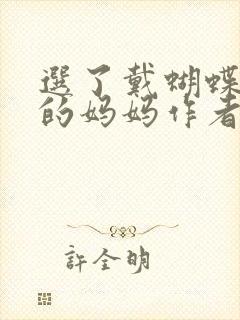 選了戴蝴蝶
的妈妈作者
許全明